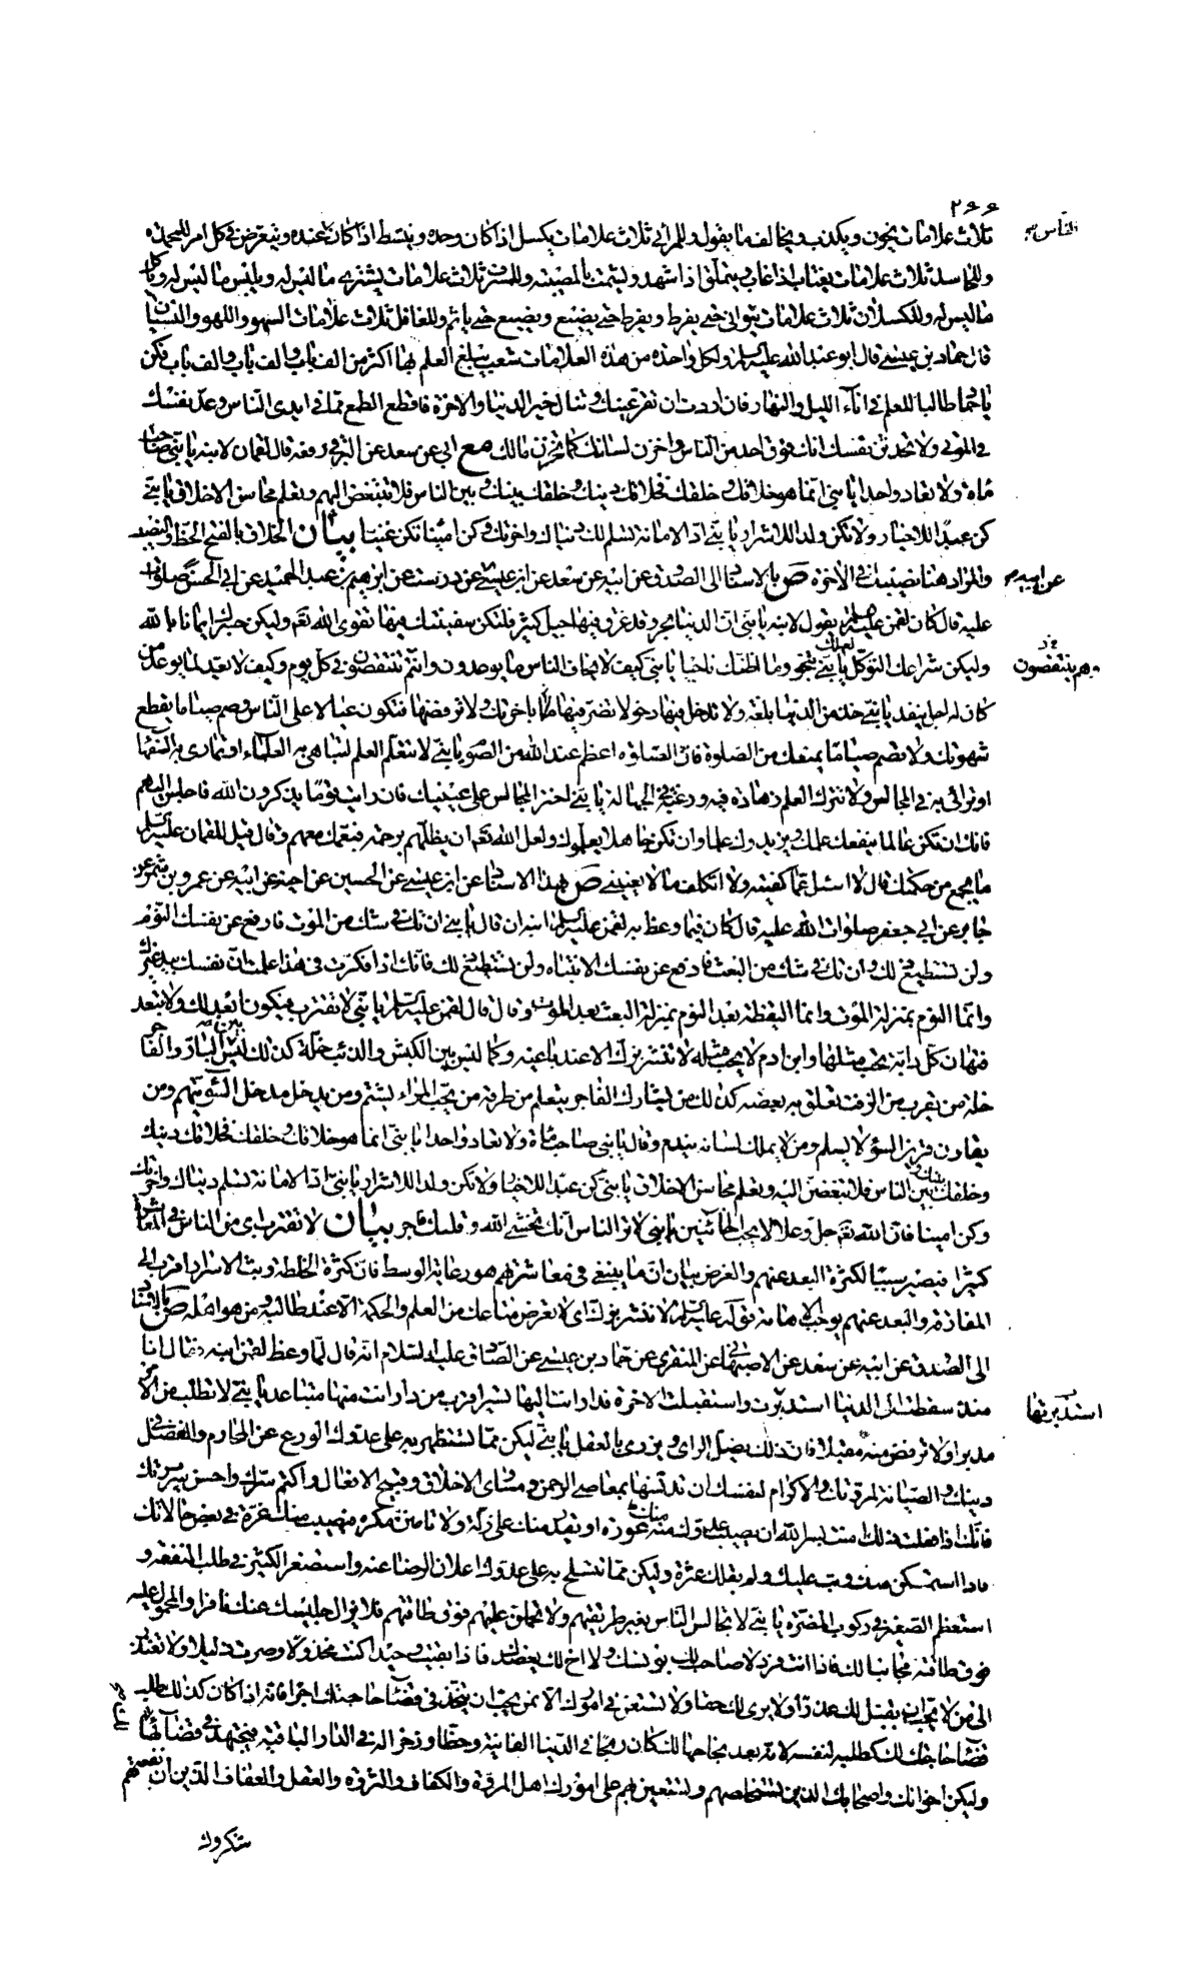 ٢٦٦
ثلاث علامات يخون ويكذب ويخالف ما يقول وللمرائي ثلاث علامات يكسل اذا كان وحده وينشط اذا كان الناس عنده ويتعرض في كل امر للمحمدة
وللحاسد ثلاث علامات يغتاب اذا غاب ويتملق اذا شهد ويشمت بالمصيبة وللمسرف ثلاث علامات يشتري ما ليس له ويلبس ما ليس له وياكل
ما ليس له وللكسلان ثلاث علامات يتوانى حتى يفرط ويفرط حتى يضيع ويضيع حتى ياثم وللغافل ثلاث علامات السهو واللهو والنسيان
قال حماد بن عيسى قال ابو عبد الله عليه السلم ولكل واحدة من هذه العلامات شعب يبلغ العلم بها اكثر من الف باب والف باب والف باب فكن
يا حماد طالبا للعلم في اناء الليل والنهار فان اردت ان تقر عينك وتنال خير الدنيا والاخرة فاقطع الطمع مما في ايدي الناس وعد نفسك
في الموتى ولا تحدثن نفسك انك فوق احد من الناس واخزن لسانك كما تخزن مالك مع ابي عن سعد عن البرقي رفعه قال لقمان لابنه يا بني صاحب
مأة ولا تعاد واحدا يا بني انما هو خلاقك وخلقك فخلاقك دينك وخلقك بينك وبين الناس فلا تبتغض اليهم وتعلم محاسن الاخلاق يا بني
كن عبدا للاخيار ولا تكن ولدا للاشرار يا بني اد الامانة تسلم لك دنياك واخرتك وكن امينا تكن غنيا بيان الخلاق بالفتح الحظ والنصيب
والمراد هنا نصيبك في الاخرة ص بالاسناد الى الصدوق عن ابيه عن سعد عن ابن عيسى عن درست عن ابرهيم بن عبد الحميد عن ابي الحسن صلوات الله
عن ابيه
عليه قال كان لقمن عليه السلم يقول لابنه يا بني ان الدنيا بحر وقد غرق فيها جيل كثير فلتكن سفينتك فيها تقوى الله تعم وليكن جسرك ايمانا بالله
وليكن شراعك التوكل لعلك يا بني تنجو وما اظنك ناجيا يا بني كيف لا يخاف الناس ما يوعدون وانتم تنتقصون في كل يوم وكيف لا يعد لما يوعد من
وهم ينتقصون
كان له اجل ينفد يا بني خذ من الدنيا بلغة ولا تدخل فيها دخولا تضر فيها باخرتك ولا ترفضها فتكون عيالا على الناس وصم صياما يقطع
شهوتك ولا تصم صياما يمنعك من الصلوة فان الصلوة اعظم عند الله من الصوم يا بني لا تتعلم العلم لتباهي به العلماء او تماري به السفهاء
او ترائي به في المجالس ولا تترك العلم زهادة فيه ورغبة في الجهالة يا بني اختر المجالس على عينيك فان رايت قوما يذكرون الله فاجلس اليهم
فانك ان تكن عالما ينفعك علمك ويزيدوك علما وان تكن جاهلا يعلموك ولعل الله تعم ان يظلهم برحمة فيعمك معهم وقال قيل للقمان عليه السلم
ما يجمع من حكمتك قال لا اسئل عما كفيته ولا اتكلف ما لا يعنيني ص بهذا الاسناد عن ابن عيسى عن الحسين عن اخيه عن ابيه عن عمرو بن شمر عن
جابر عن ابي جعفر صلوات الله عليه قال كان فيما وعظ به لقمن عليه السلم ابنه ان قال يا بني ان تك في شك من الموت فارفع عن نفسك النوم
ولن تستطيع ذلك وان تك في شك من البعث فادفع عن نفسك الانتباه ولن تستطيع ذلك فانك اذا فكرت في هذا علمت ان نفسك بيد غيرك
وانما النوم بمنزلة الموت وانما اليقظة بعد النوم بمنزلة البعث بعد الموت وقال قال لقمن عليه السلم يا بني لا تقترب فيكون ابعد لك ولا تبعد
فتهان كل دابة تحب مثلها وابن ادم لا يحب مثله لا تنشر بزك الا عند باغيه وكما ليس بين الكبش والذئب خلة كذلك ليس بين البار والفاجر
خلة من يقرب من الزفت تعلق به بعضه كذلك من يشارك الفاجر يتعلم من طرقه من يحب المراء يشتم ومن يدخل مدخل السوء يتهم ومن
يقارن قرين السوء لا يسلم ومن لا يملك لسانه يندم وقال يا بني صاحب مأة ولا تعاد واحدا يا بني انما هو خلاقك وخلقك فخلاقك دينك
وخلقك بينك وبين الناس فلا تبغضن اليه وتعلم محاسن الاخلاق يا بني كن عبدا للاخيار ولا تكن ولدا للاشرار يا بني اد الامانة تسلم دنياك واخرتك
وكن امينا فان الله تعم جل وعلا لا يحب الخائنين يا بني لا تر الناس انك تخشى الله وقلبك فاجر بيان لا تقترب اي من الناس في المعاشرة
كثيرا فيصير سببا لكثرة البعد عنهم والغرض بيان ان ما ينبغي في معاشرتهم هو رعاية الوسط فان كثرة الخلطة وبث الاسرار اقرب الى
المفارقة والبعد عنهم يوجب الاهانة قوله عليه السلم لا تنشر بزك اي لا تعرض متاعك من العلم والحكمة الا عند طالبه ومن هو اهله ص بالاسناد
الى الصدوق عن ابيه عن سعد عن الاصبهاني عن المنقري عن حماد بن عيسى عن الصادق عليه السلام انه قال لما وعظ لقمن ابنه فقال انا
منذ سقطت الى الدنيا استدبرت واستقبلت الاخرة فدار انت اليها تسير اقرب من دار انت منها متباعد يا بني لا تطلب من الامر
استدبرتها
مدبرا ولا ترفض منه مقبلا فان ذلك يضل الراي ويزري بالعقل يا بني ليكن مما تستظهر به على عدوك الورع عن المحارم والفضل في
دينك والصيانة لمروتك والاكرام لنفسك ان تدنسها بمعاصي الرحمن ومساوي الاخلاق وقبيح الافعال واكتم سرك واحسن سريرتك
فانك اذا فعلت ذلك امنت بستر الله ان يصيب عدوك منك عورة او يقدر منك على زلة ولا تامنن مكره فيصيب منك غرة في بعض حالاتك
فاذا استمكن منك وثب عليك ولم يقلك عثرة وليكن مما تتسلح به على عدوك اعلان الرضا عنه واستصغر الكثير في طلب المنفعة و
استعظم الصغير في ركوب المضرة يا بني لا تجالس الناس بغير طريقتهم ولا تحملن عليهم فوق طاقتهم فلا يزال جليسك عنك نافرا والمحمول عليه
فوق طاقته مجانبا لك فاذا انت فرد لا صاحب لك يونسك ولا اخ لك يعضدك فاذا بقيت وحيدا كنت مخذولا وصرت ذليلا ولا تعتذر
الى من لا يحب ان يقبل لك عذرا ولا يرى لك حقا ولا تستعن في امورك الا بمن يحب ان يتخذ في قضاء حاجتك اجرا فانه اذا كان كذلك طلب
قضاء حاجتك لك كطلبه لنفسه لانه بعد نجاحها لك كان ربحا في الدنيا الفانية وحظا وذخرا له في الدار الباقية فيجتهد في قضائها لك
وليكن اخوانك واصحابك الذين تستخلصهم وتستعين بهم على امورك اهل المروة والكفاف والثروة والعقل والعفاف الذين ان نفعتهم
شكروك